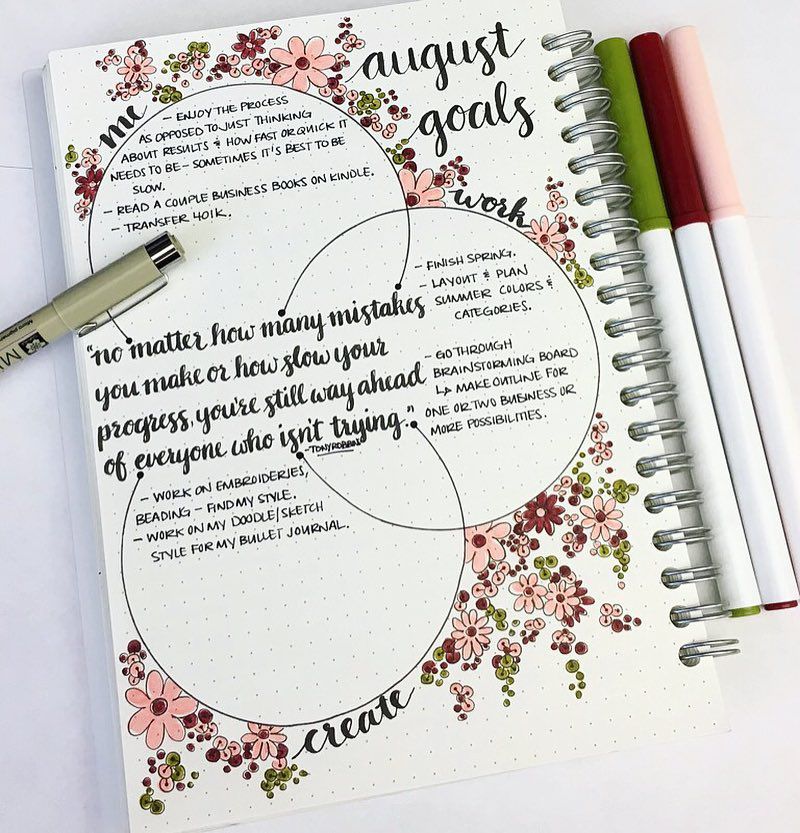 august
goals
me
– ENJOY THE PROCESS
AS OPPOSED TO JUST THINKING
ABOUT RESULTS & HOW FAST OR QUICK IT
NEEDS TO BE – SOMETIMES IT'S BEST TO BE
SLOW.
– READ A COUPLE BUSINESS BOOKS ON KINDLE.
– TRANSFER 401K.
work
– FINISH SPRING.
– LAYOUT & PLAN
SUMMER COLORS &
CATEGORIES.
– GO THROUGH
BRAINSTORMING BOARD
↳ MAKE OUTLINE FOR
ONE OR TWO BUSINESS OR
MORE POSSIBILITIES.
"no matter how many mistakes
you make or how slow your
progress, you're still way ahead
of everyone who isn't trying."
– TONY ROBBINS
– WORK ON EMBROIDERIES,
BEADING – FIND MY STYLE.
– WORK ON MY DOODLE/SKETCH
STYLE FOR MY BULLET JOURNAL.
create